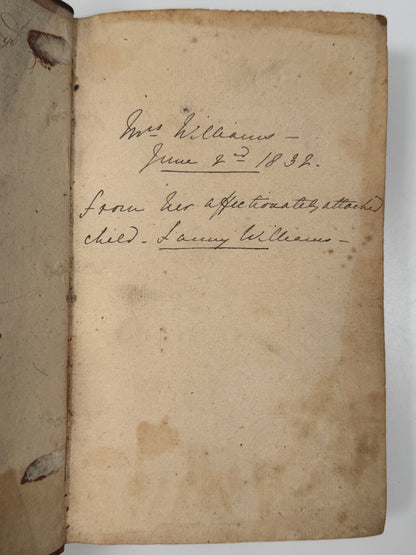 Mrs Williams –
June 2nd 1832.
from her affectionately attached
child – Fanny Williams –